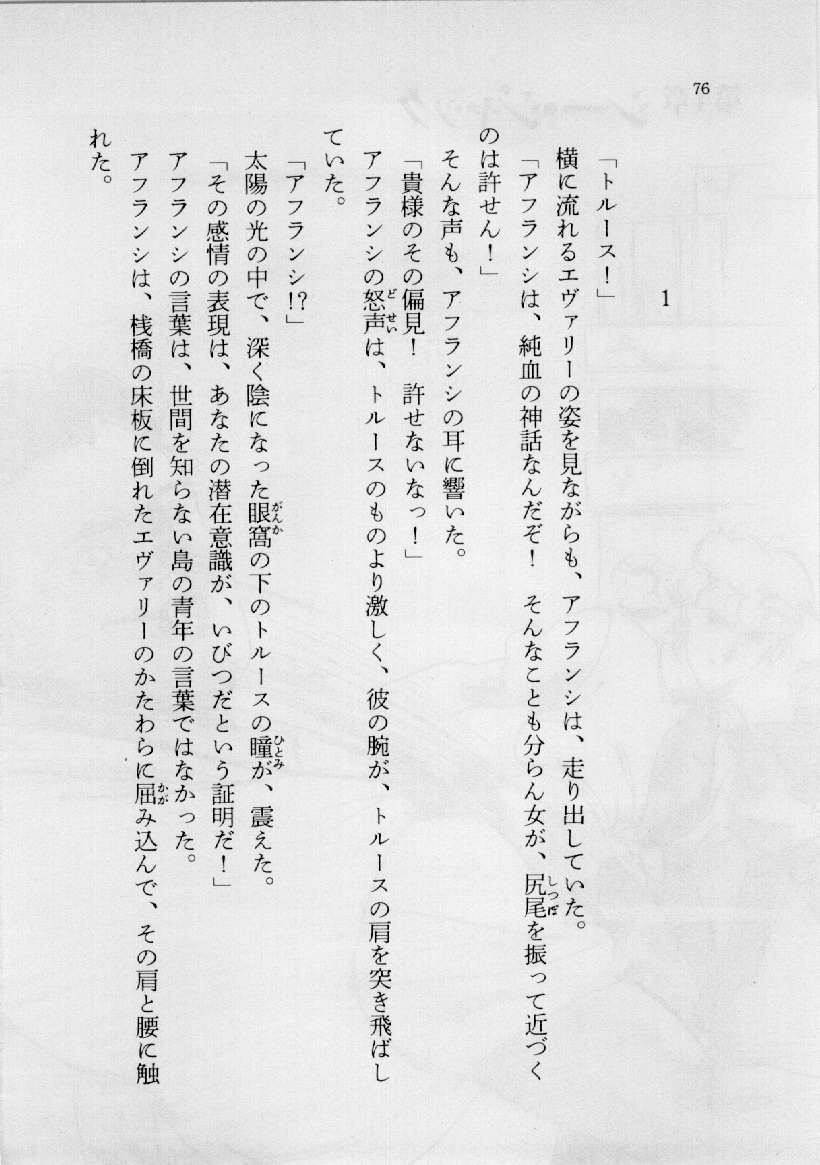 76
1
「トルース！」
横に流れるエヴァリーの姿を見ながらも、アフランシは、走り出していた。
「アフランシは、純血の神話なんだぞ！　そんなことも分らん女が、尻尾を振って近づく
のは許せん！」
そんな声も、アフランシの耳に響いた。
「貴様のその偏見！　許せないなっ！」
アフランシの怒声は、トルースのものより激しく、彼の腕が、トルースの肩を突き飛ばし
ていた。
「アフランシ!?」
太陽の光の中で、深く陰になった眼窩の下のトルースの瞳が、震えた。
「その感情の表現は、あなたの潜在意識が、いびつだという証明だ！」
アフランシの言葉は、世間を知らない島の青年の言葉ではなかった。
アフランシは、桟橋の床板に倒れたエヴァリーのかたわらに屈み込んで、その肩と腰に触
れた。